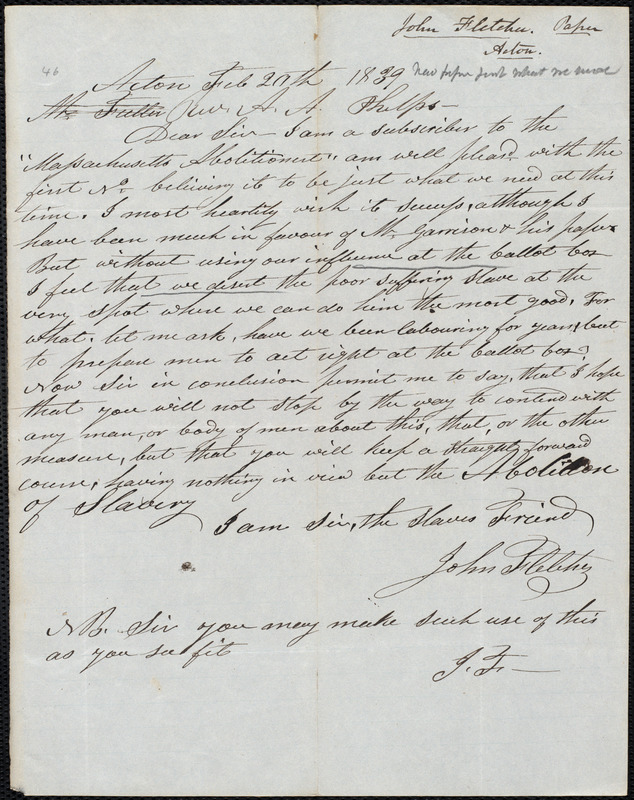 John Fletcher. Paper
Acton.
46
Acton Feb 20th 1839
New paper just what we need
Mr. Fuller Rev. A. A. Phelps—
Dear Sir— I am a subscriber to the
"Massachusetts Abolitionist", am well pleasd. with the
first No. believing it to be just what we need at this
time. I most heartily wish it success, although I
have been much in favour of Mr. Garrison & his paper
But without using our influence at the ballot box
I feel that we desert the poor suffering slave at the
very spot where we can do him the most good. For
what, let me ask, have we been labouring for years, but
to prepare men to act right at the ballot box?
Now Sir in conclusion permit me to say, that I hope
that you will not stop by the way to contend with
any man, or body of men about this, that, or the other
measure, but that you will keep a straight forward
course, having nothing in view but the Abolition
of Slavery
I am Sir, the Slaves Friend
John Fletcher
NB. Sir you may make such use of this
as you see fit
J. F.—